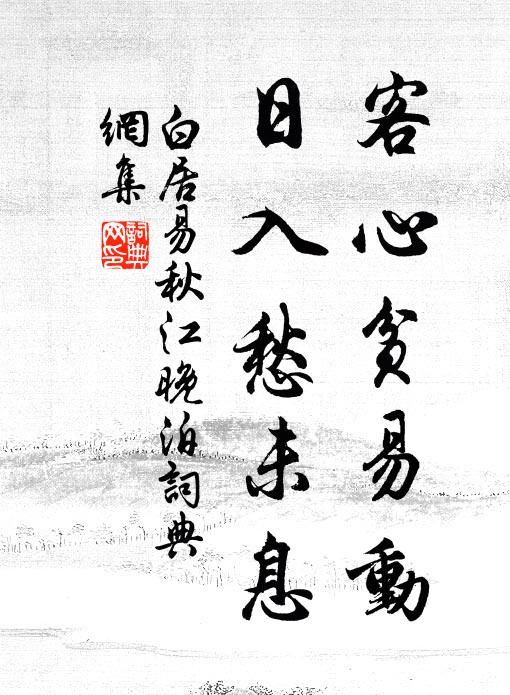 客心貧易動
日入愁未息
白居易秋江晚泊詞典
網集
詞典网印